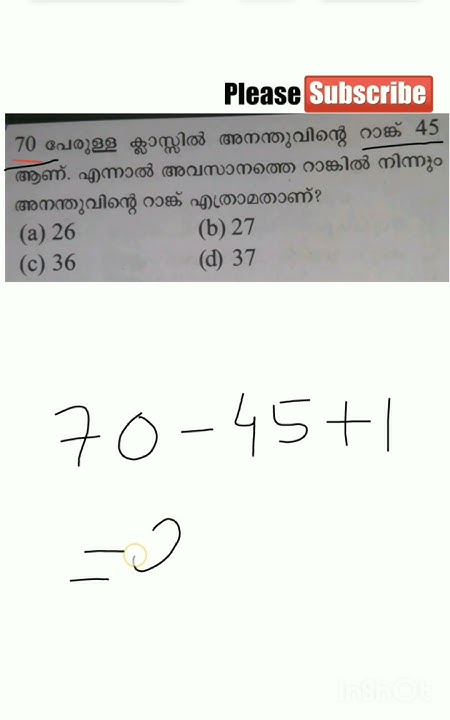 Please Subscribe
70 പേരുള്ള ക്ലാസ്സിൽ അനന്തുവിന്റെ റാങ്ക് 45
ആണ്. എന്നാൽ അവസാനത്തെ റാങ്കിൽ നിന്നും
അനന്തുവിന്റെ റാങ്ക് എത്രാമതാണ്?
(a) 26 (b) 27
(c) 36 (d) 37
70-45+1
=
inshot